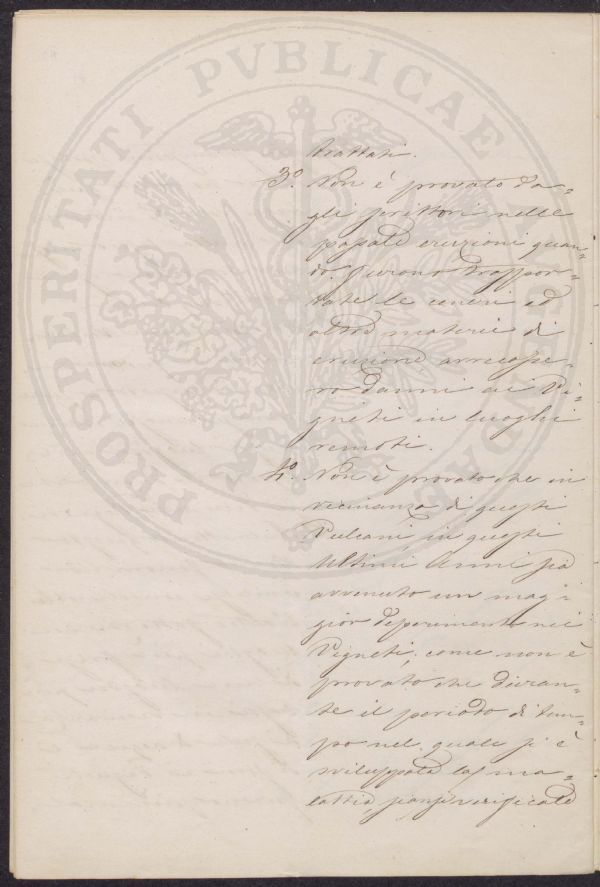 PROSPERITATI PVBLICAE AVGENDAE
trattati.
3º. Non è provato da=
gli scrittori nelle
passate eruzioni quan=
do furono trasspor=
tate le ceneri ed
altre materie di
eruzione arrecasse=
ro danni ai Vi=
gneti in luoghi
remoti.
4º. Non è provato che in
vicinanza di questi
Vulcani, in questi
Ultimi Anni sia
avvenuto un mag=
gior deperimento nei
Vigneti, come non è
provato che duran=
te il periodo di tem=
po nel quale si è
sviluppata la ma=
lattia, siansi verificate